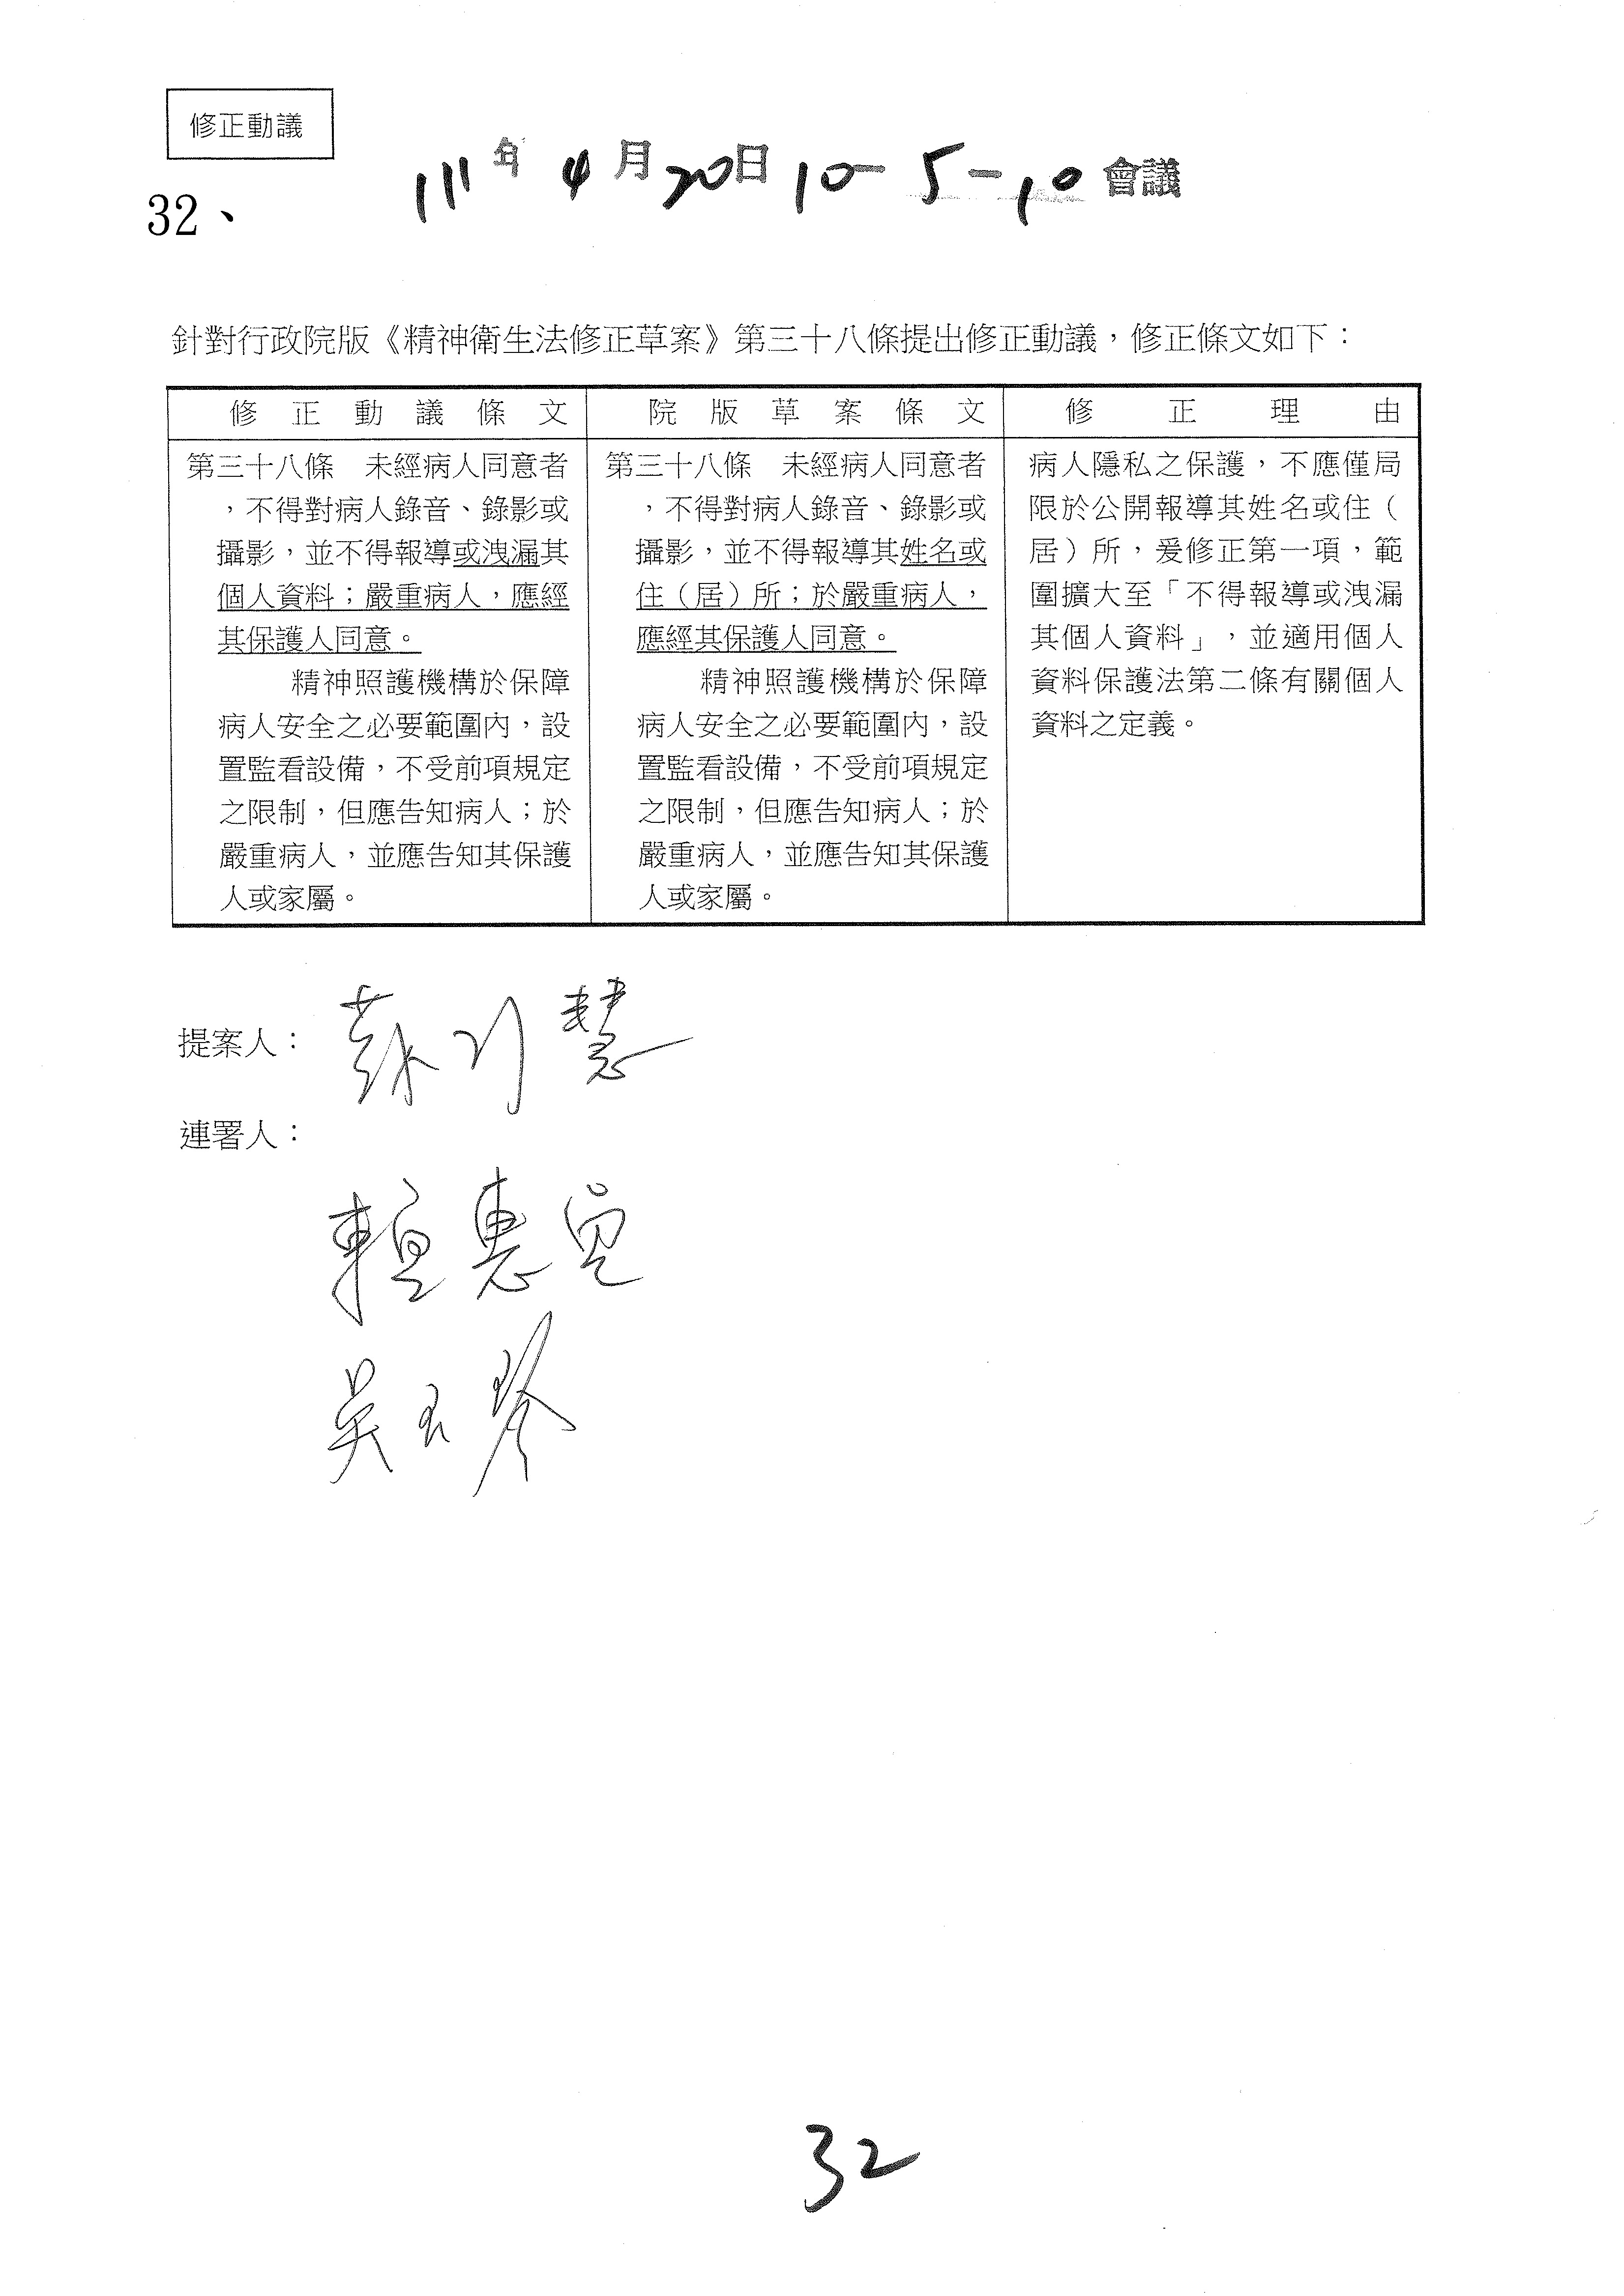 修正動議
111年4月20日10-5-10會議
32、
針對行政院版《精神衛生法修正草案》第三十八條提出修正動議，修正條文如下：
修正動議條文
第三十八條　未經病人同意者
，不得對病人錄音、錄影或
攝影，並不得報導或洩漏其
個人資料；嚴重病人，應經
其保護人同意。
精神照護機構於保障
病人安全之必要範圍內，設
置監看設備，不受前項規定
之限制，但應告知病人；於
嚴重病人，並應告知其保護
人或家屬。
院版草案條文
第三十八條　未經病人同意者
，不得對病人錄音、錄影或
攝影，並不得報導其姓名或
住（居）所；於嚴重病人，
應經其保護人同意。
精神照護機構於保障
病人安全之必要範圍內，設
置監看設備，不受前項規定
之限制，但應告知病人；於
嚴重病人，並應告知其保護
人或家屬。
修正理由
病人隱私之保護，不應僅局
限於公開報導其姓名或住（
居）所，爰修正第一項，範
圍擴大至「不得報導或洩漏
其個人資料」，並適用個人
資料保護法第二條有關個人
資料之定義。
提案人：
連署人：
賴惠員
吳玉琴
32